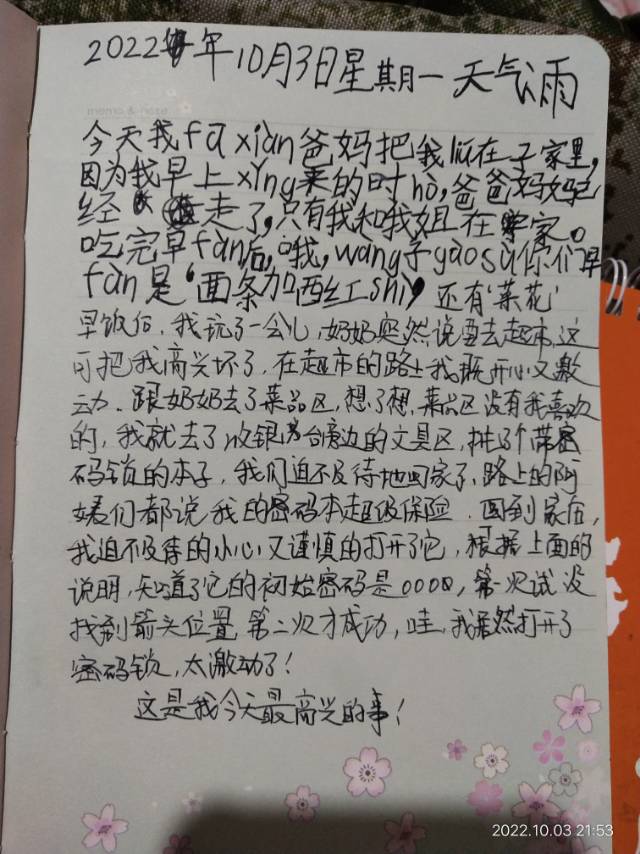 2022年10月3日星期一天气雨
今天我fā xiàn爸妈把我liú在子家里,
因为我早上xǐng来的时hò,爸爸妈妈已
经走了,只有我和我姐在家。
吃完早fàn后,哦,wàng子gào sù你们早
fàn是‘面条加西红shì’还有‘菜花’
早饭后,我玩了一会儿,奶奶突然说要去超市,这
可把我高兴坏了,在超市的路上我既开心又激
动.跟奶奶去了菜品区,想了想,菜品区没有我喜欢
的,我就去了收银台旁边的文具区,挑了个带密
码锁的本子,我们迫不及待地回家了,路上的阿
姨们都说我的密码本超级保险.回到家后,
我迫不及待的小心又谨慎的打开了它,根据上面的
说明,知道了它的初始密码是0000,第一次试没
找到箭头位置,第二次才成功,哇,我居然打开了
密码锁,太激动了!
这是我今天最高兴的事!
2022.10.03 21:53